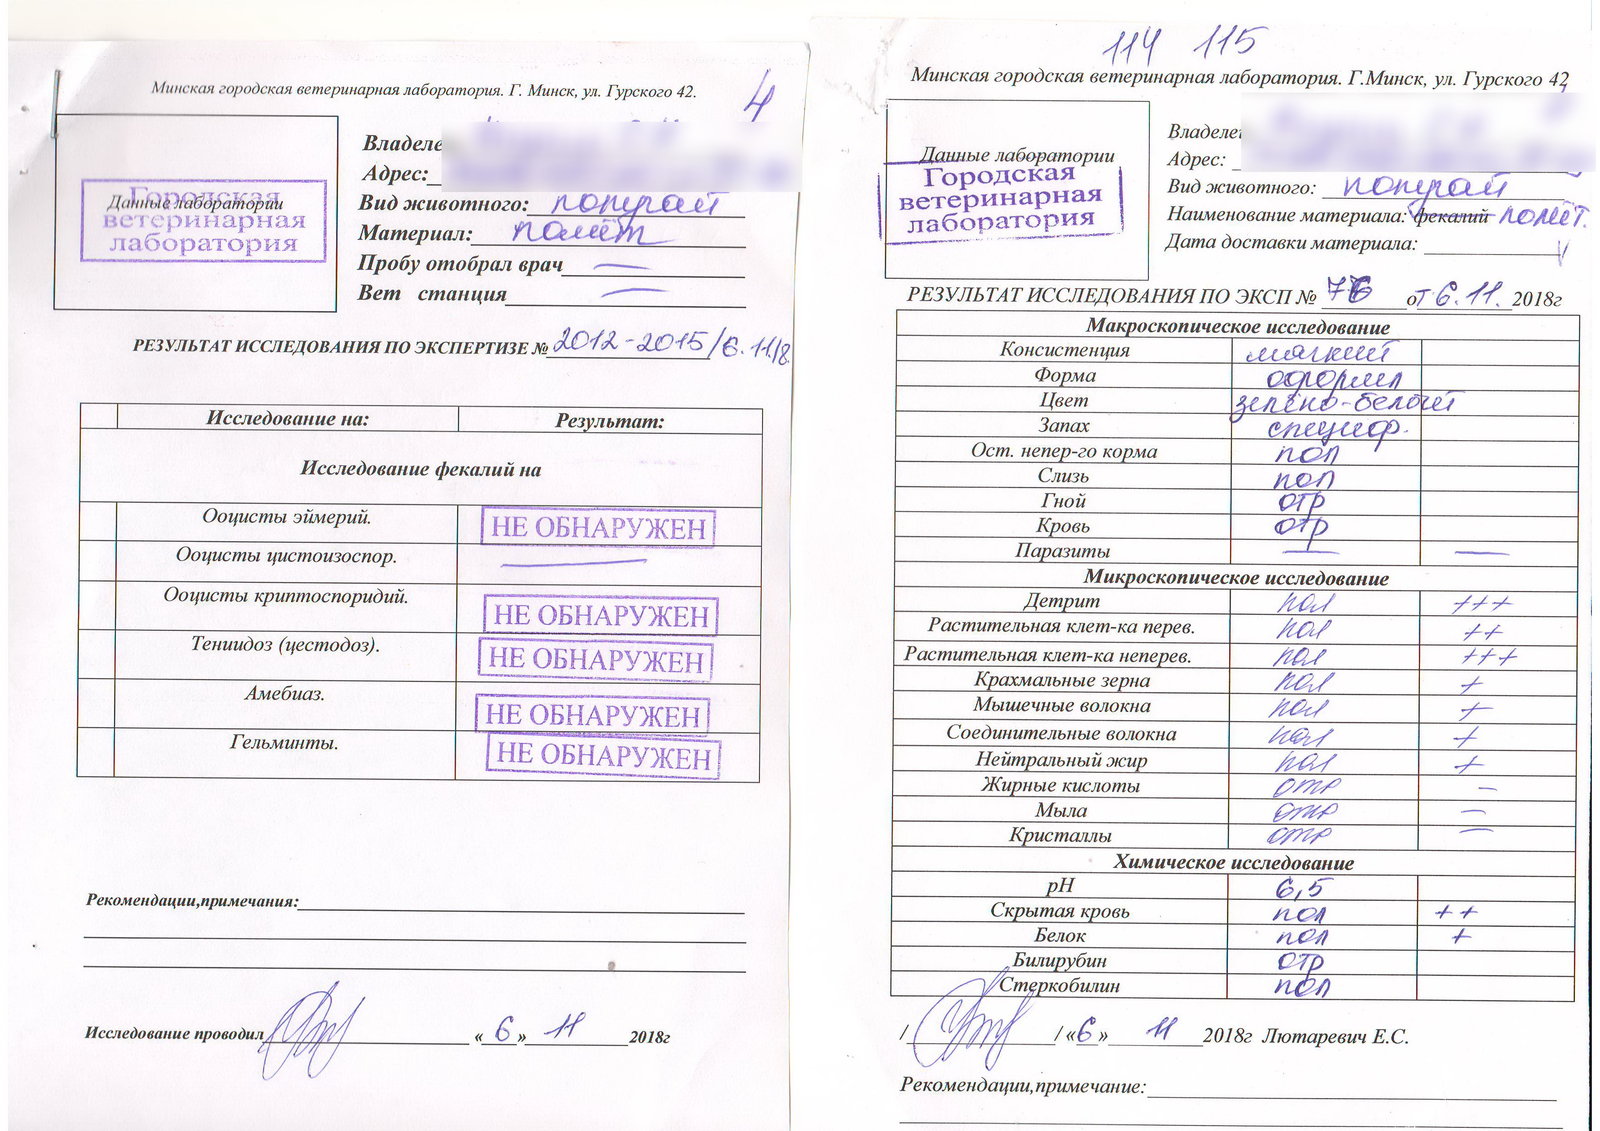 Минская городская ветеринарная лаборатория. Г. Минск, ул. Гурского 42.
4
Данные лаборатории
Городская
ветеринарная
лаборатория
Владеле
Адрес:
Вид животного: попугай
Материал: помёт
Пробу отобрал врач —
Вет станция —
РЕЗУЛЬТАТ ИССЛЕДОВАНИЯ ПО ЭКСПЕРТИЗЕ № 2012-2015/6.11.18
Исследование на: Результат:
Исследование фекалий на
Ооцисты эймерий. НЕ ОБНАРУЖЕН
Ооцисты цистоизоспор. —
Ооцисты криптоспоридий. НЕ ОБНАРУЖЕН
Тениидоз (цестодоз). НЕ ОБНАРУЖЕН
Амебиаз. НЕ ОБНАРУЖЕН
Гельминты. НЕ ОБНАРУЖЕН
Рекомендации,примечания:
Исследование проводил «6» 11 2018г
114 115
Минская городская ветеринарная лаборатория. Г.Минск, ул. Гурского 42
Данные лаборатории
Городская
ветеринарная
лаборатория
Владеле
Адрес:
Вид животного: попугай
Наименование материала: фекалий помёт.
Дата доставки материала:
РЕЗУЛЬТАТ ИССЛЕДОВАНИЯ ПО ЭКСП № 76 от 6.11. 2018г
Макроскопическое исследование
Консистенция мягкий
Форма оформл
Цвет зелено-белый
Запах специф.
Ост. непер-го корма пол
Слизь пол
Гной отр
Кровь отр
Паразиты — —
Микроскопическое исследование
Детрит пол +++
Растительная клет-ка перев. пол ++
Растительная клет-ка неперев. пол +++
Крахмальные зерна пол +
Мышечные волокна пол +
Соединительные волокна пол +
Нейтральный жир пол +
Жирные кислоты отр –
Мыла отр –
Кристаллы отр –
Химическое исследование
pH 6,5
Скрытая кровь пол ++
Белок пол +
Билирубин отр
Стеркобилин пол
/ / «6» 11 2018г Лютаревич Е.С.
Рекомендации,примечание: